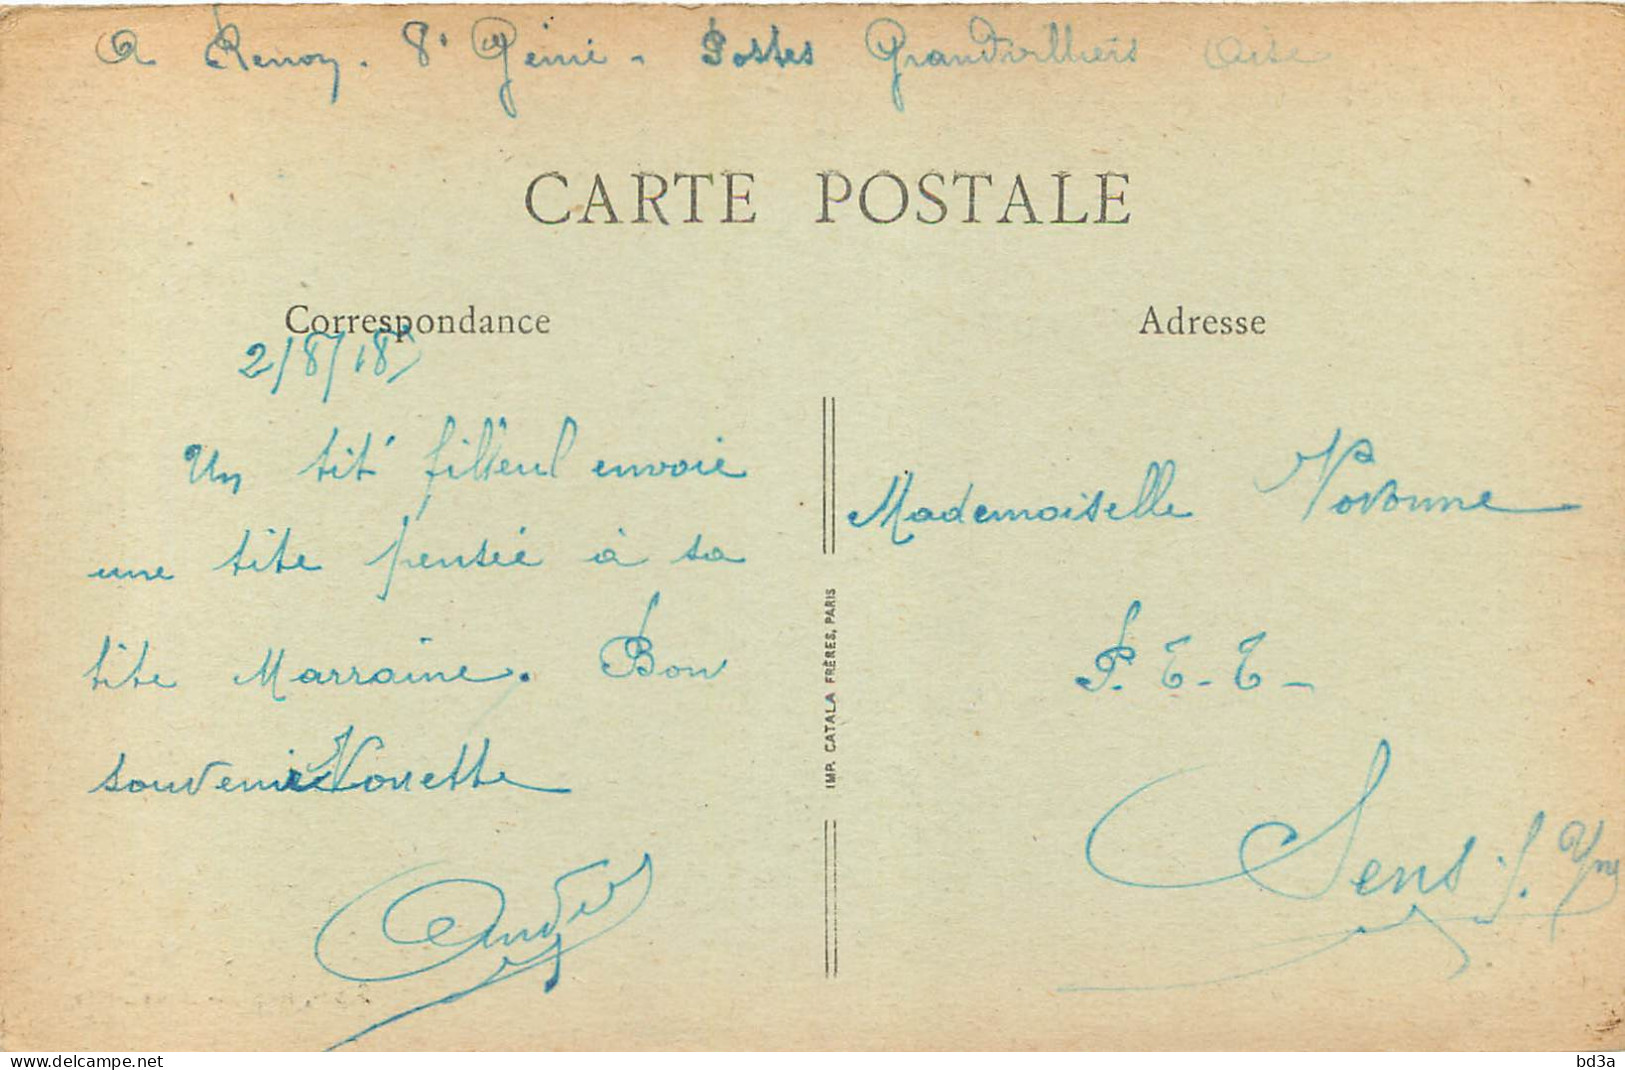 A Renoy. 8e Génie - Postes Grandvilliers Oise
CARTE POSTALE
Correspondance
2/8/18
Un tit' filleul envoie
une tite pensée à sa
tite Marraine. Bon
souvenir
André
Adresse
Mademoiselle
P.T.T-
Sens s. Yne
IMP. CATALA FRÈRES, PARIS
www.delcampe.net
bd3a